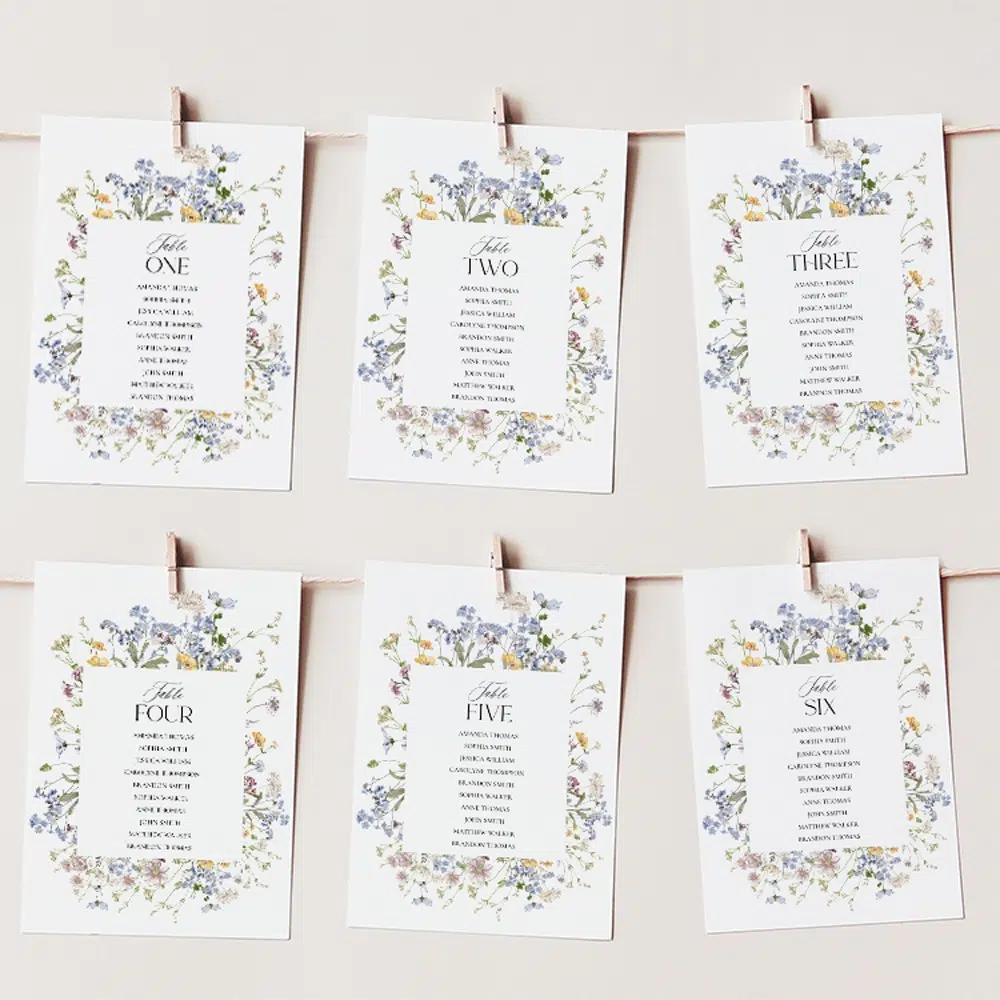 Table
ONE
AMANDA THOMAS
SOPHIA SMITH
JESSICA WILLIAM
CAROLYNE THOMPSON
BRANDON SMITH
SOPHIA WALKER
ANNE THOMAS
JOHN SMITH
MATTHEW WALKER
BRANDON THOMAS
Table
TWO
AMANDA THOMAS
SOPHIA SMITH
JESSICA WILLIAM
CAROLYNE THOMPSON
BRANDON SMITH
SOPHIA WALKER
ANNE THOMAS
JOHN SMITH
MATTHEW WALKER
BRANDON THOMAS
Table
THREE
AMANDA THOMAS
SOPHIA SMITH
JESSICA WILLIAM
CAROLYNE THOMPSON
BRANDON SMITH
SOPHIA WALKER
ANNE THOMAS
JOHN SMITH
MATTHEW WALKER
BRANDON THOMAS
Table
FOUR
AMANDA THOMAS
SOPHIA SMITH
JESSICA WILLIAM
CAROLYNE THOMPSON
BRANDON SMITH
SOPHIA WALKER
ANNE THOMAS
JOHN SMITH
MATTHEW WALKER
BRANDON THOMAS
Table
FIVE
AMANDA THOMAS
SOPHIA SMITH
JESSICA WILLIAM
CAROLYNE THOMPSON
BRANDON SMITH
SOPHIA WALKER
ANNE THOMAS
JOHN SMITH
MATTHEW WALKER
BRANDON THOMAS
Table
SIX
AMANDA THOMAS
SOPHIA SMITH
JESSICA WILLIAM
CAROLYNE THOMPSON
BRANDON SMITH
SOPHIA WALKER
ANNE THOMAS
JOHN SMITH
MATTHEW WALKER
BRANDON THOMAS